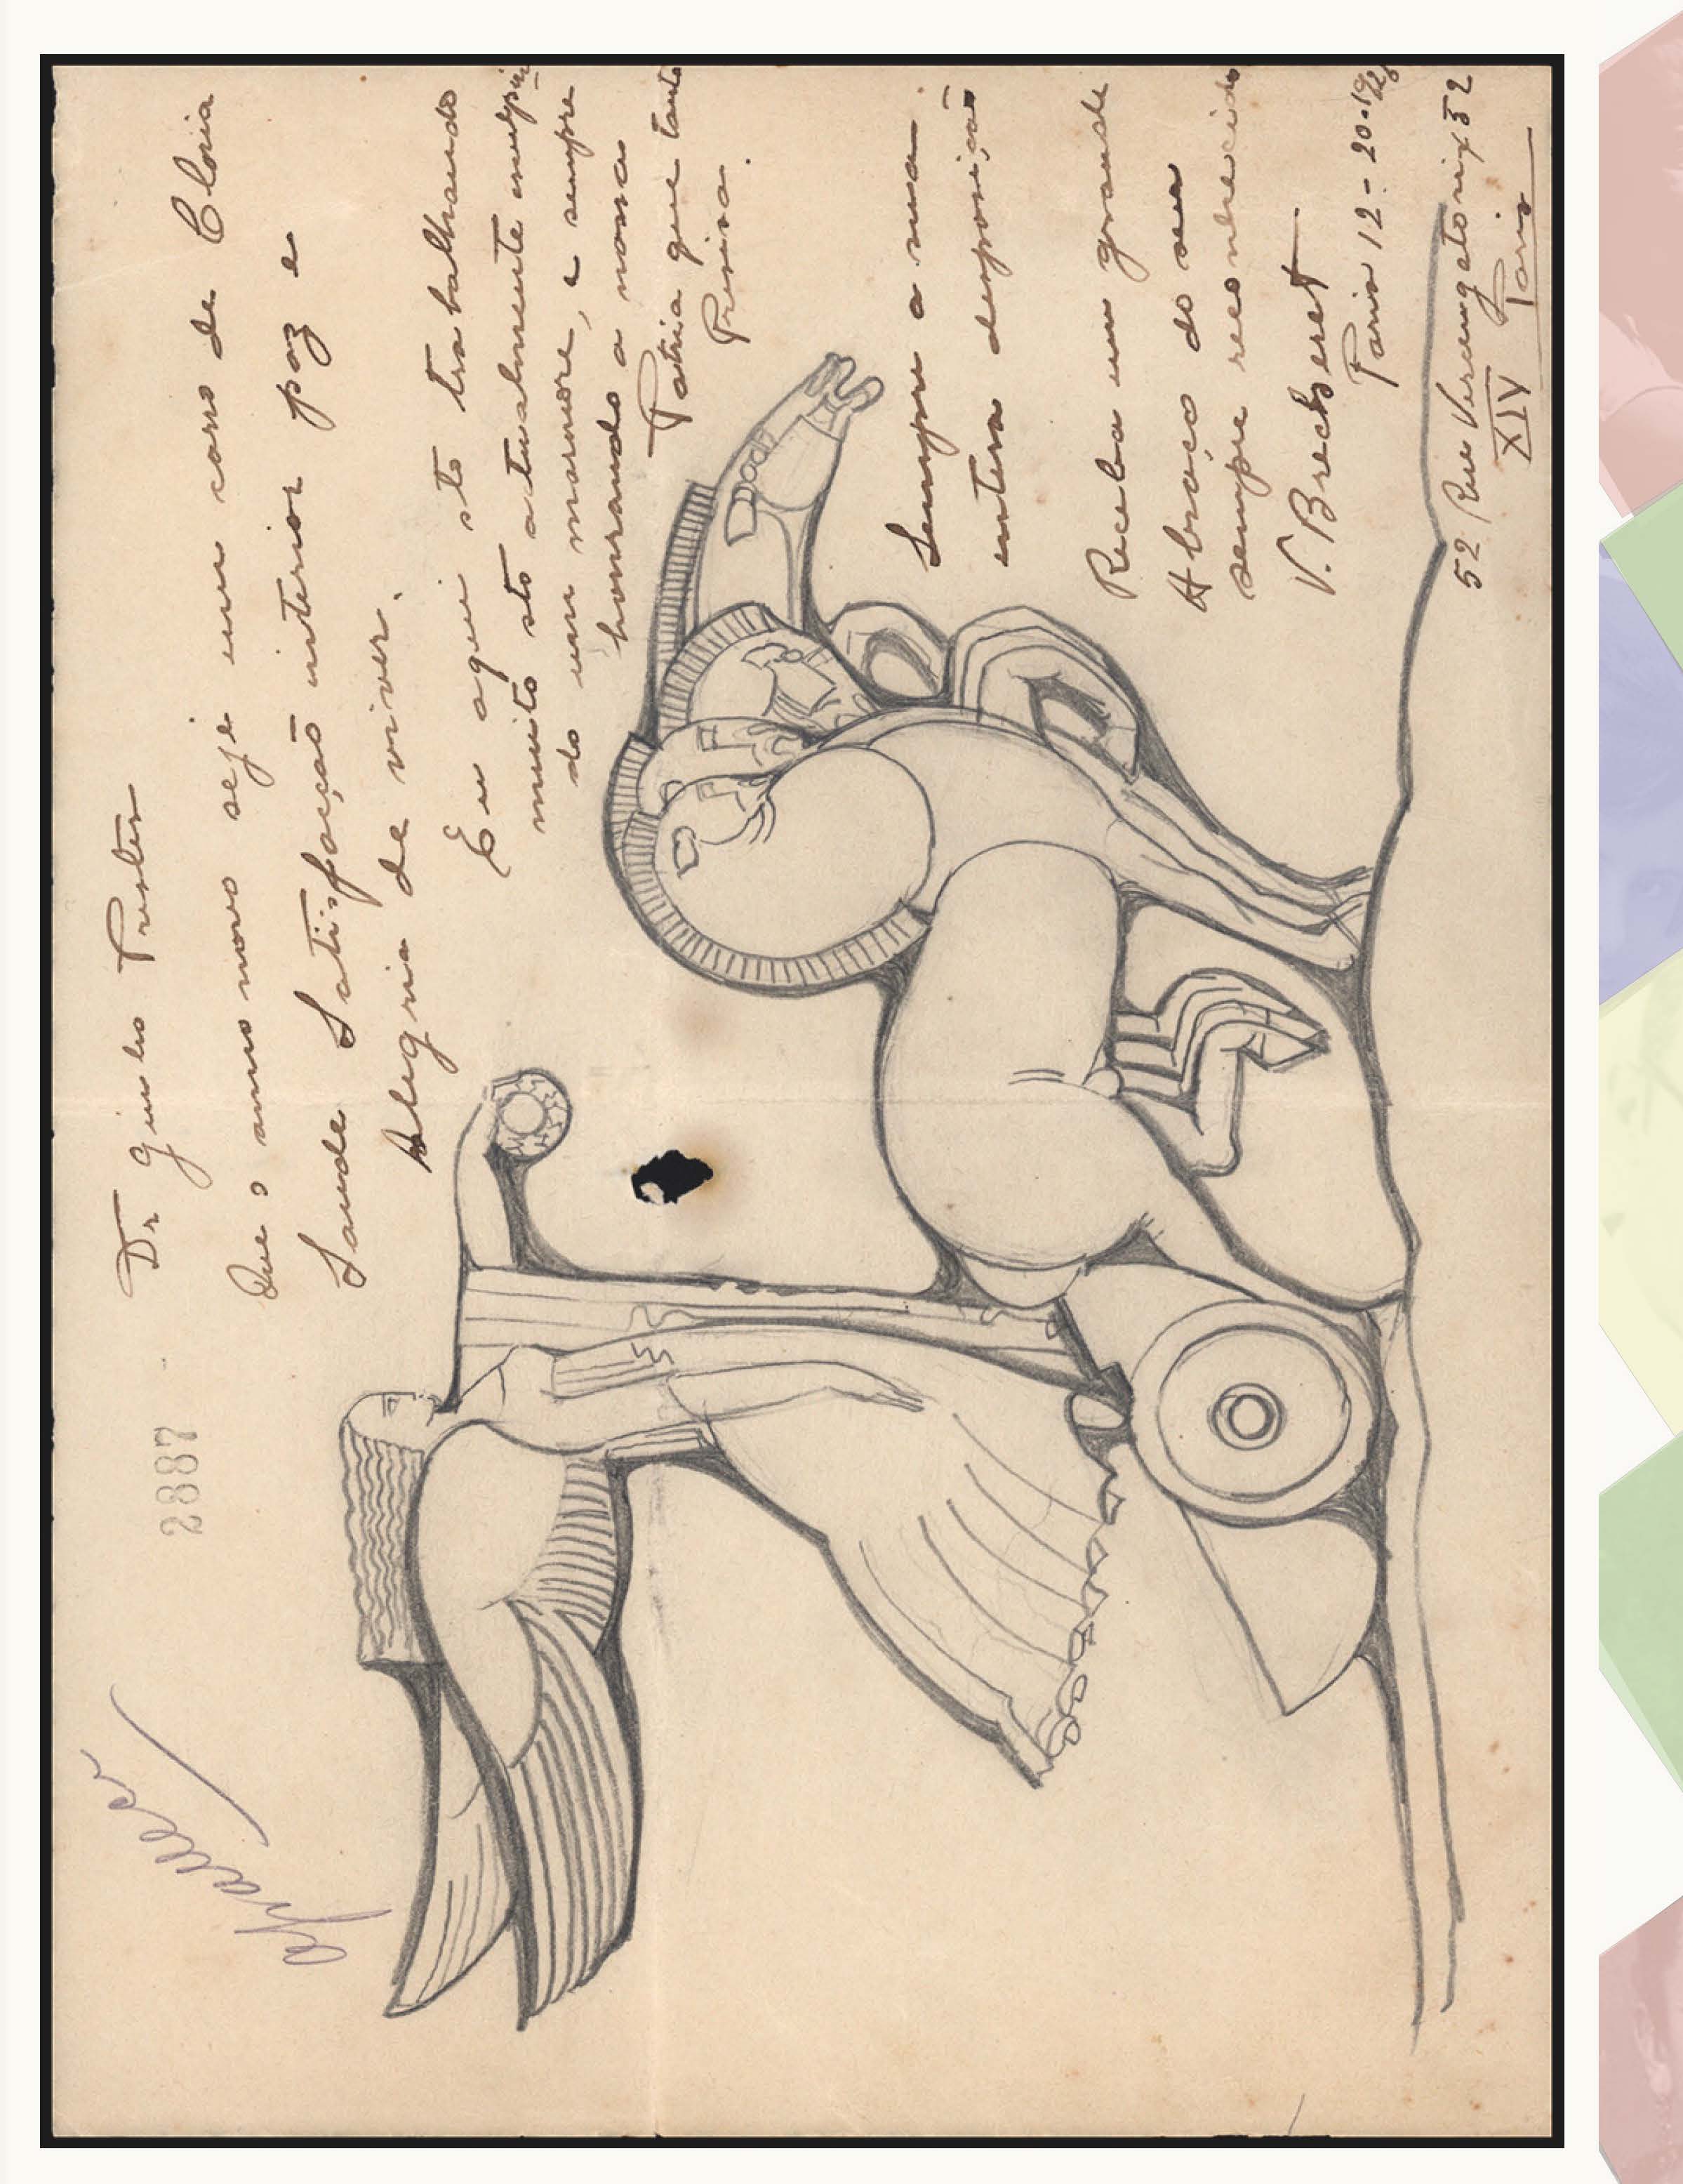 Dr Giulio Prestes
Que o anno novo seje um carro de Gloria
Saude Satisfação interior paz e
Alegria de viver.
Eu aqui sto trabalhando
muito sto actualmente esculpin
do um marmore, e sempre
honrando a nossa
Patria que tanto
Precisa.
Sempre a sua
inteira desposição
Receba um grande
Abraço do seu
sempre reconhecido
V. Brecheret
Paris 12-20-
52 Rue Vercingetorix 52
XIV Paris
2887